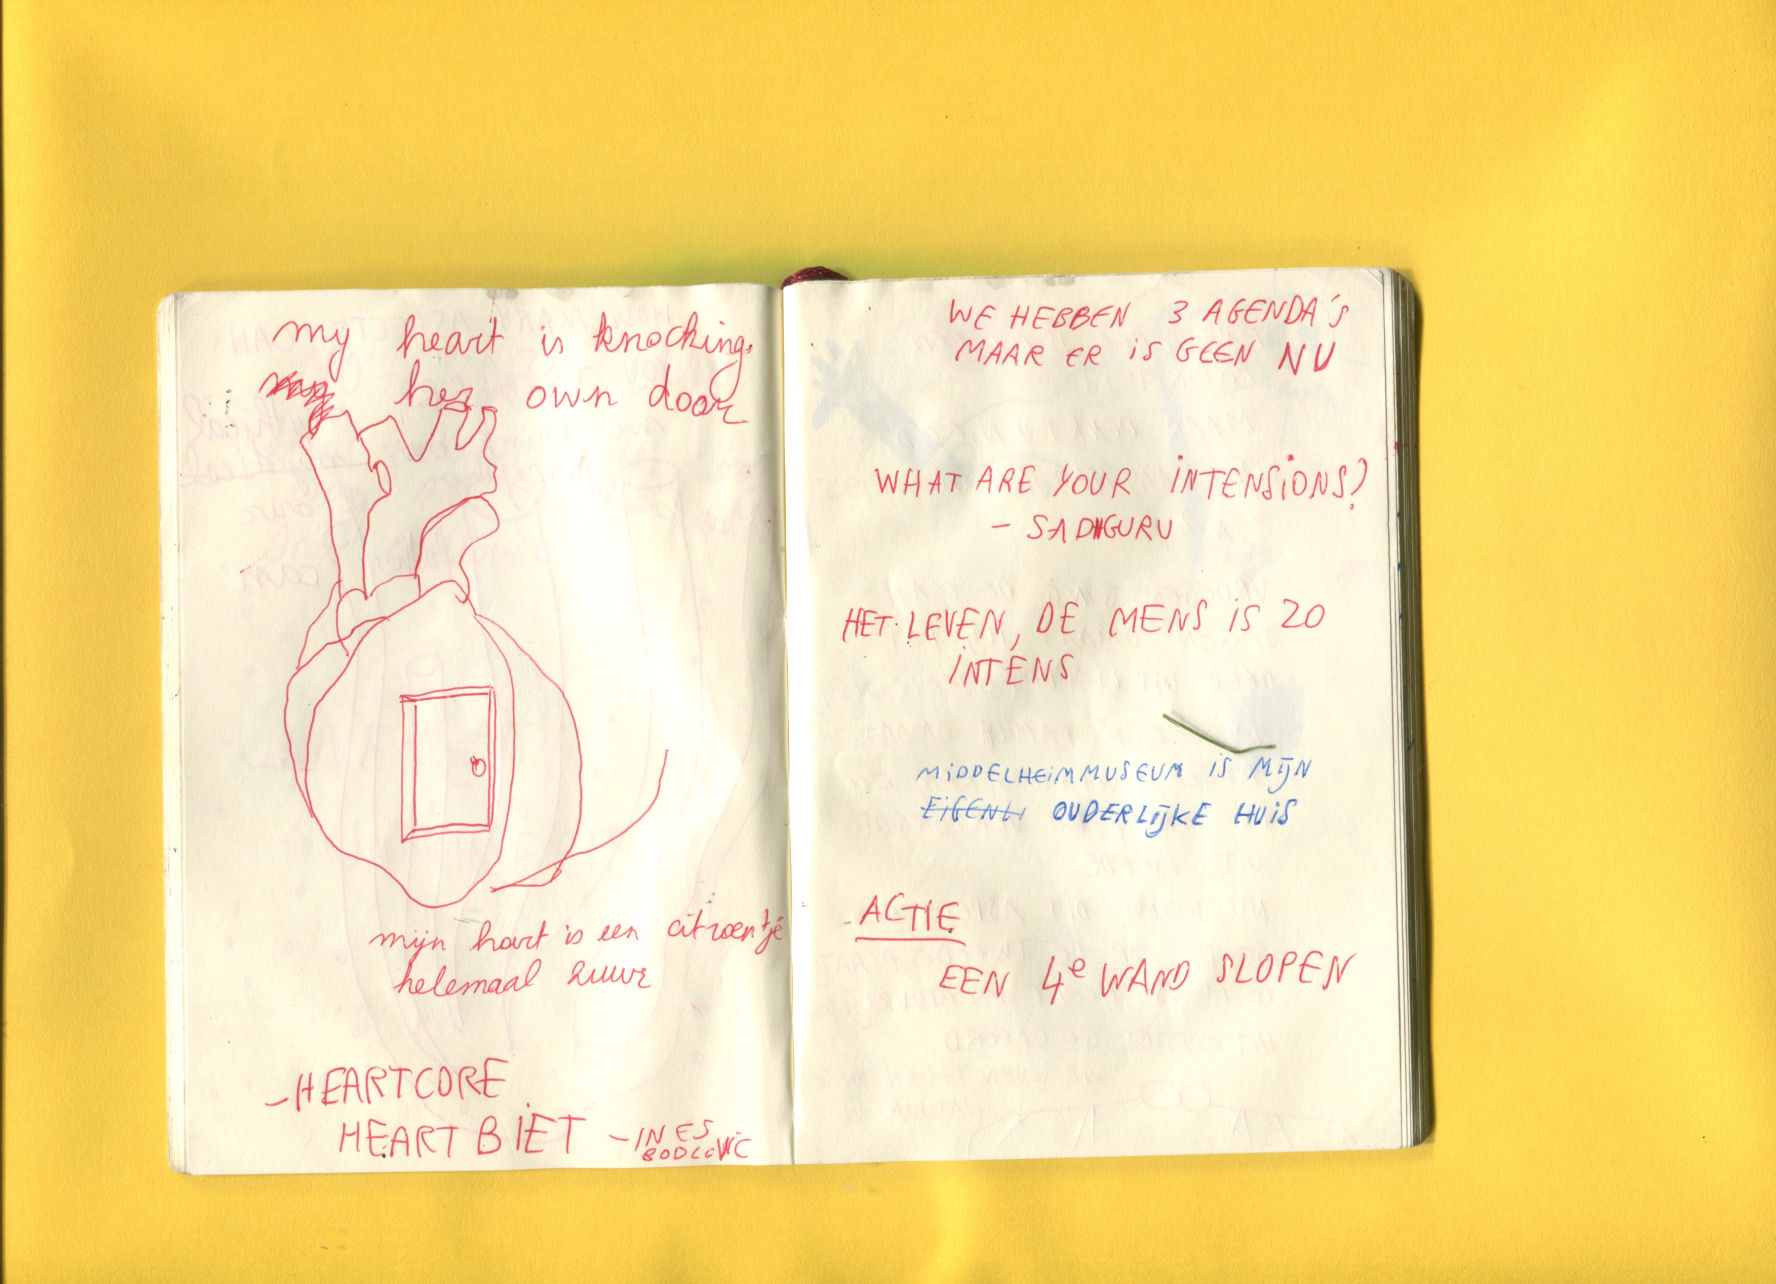 my heart is knocking
her own door
mijn hart is een citroentje
helemaal zuur
- HEARTCORE
HEART BIET - INES
WE HEBBEN 3 AGENDA'S
MAAR ER IS GEEN NU
WHAT ARE YOUR INTENSIONS?
- SADHGURU
HET LEVEN, DE MENS IS ZO
INTENS
MIDDELHEIMMUSEUM IS MIJN
EIGENLI OUDERLIJKE HUIS
ACTIE
EEN 4e WAND SLOPEN